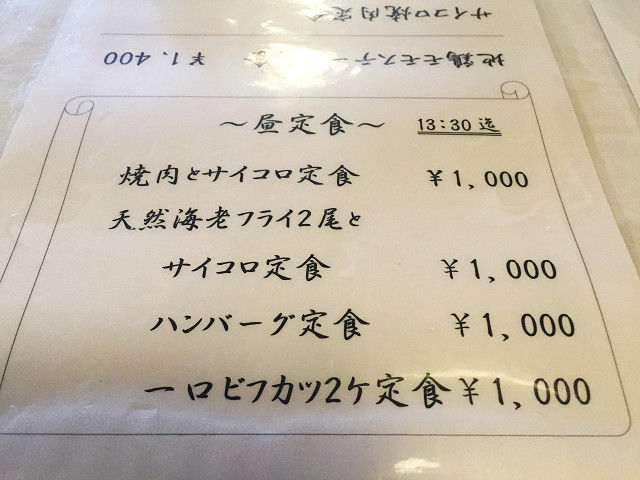 サイコロ焼肉定
地鶏モモステー ¥1,400
～昼定食～ 13:30迄
焼肉とサイコロ定食 ¥1,000
天然海老フライ2尾と
サイコロ定食 ¥1,000
ハンバーグ定食 ¥1,000
一口ビフカツ2ケ定食 ¥1,000